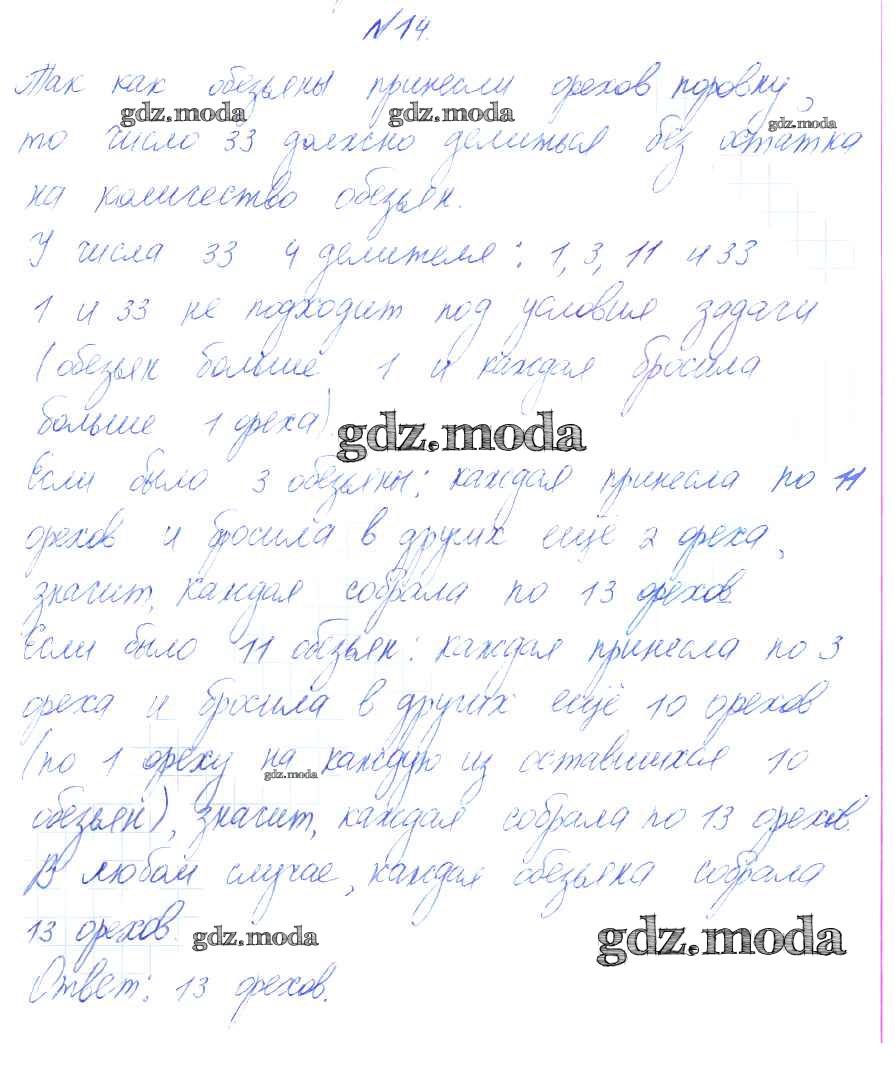 №14.
Так как обезьяны принесли орехов поровну,
gdz.moda gdz.moda gdz.moda
то число 33 должно делиться без остатка
на количество обезьян.
У числа 33 4 делителя: 1, 3, 11 и 33
1 и 33 не подходит под условия задачи
(обезьян больше 1 и каждая бросила
больше 1 ореха).
gdz.moda
Если было 3 обезьяны: каждая принесла по 11
орехов и бросила в других ещё 2 ореха,
значит, каждая собрала по 13 орехов.
Если было 11 обезьян: каждая принесла по 3
ореха и бросила в других ещё 10 орехов
(по 1 ореху на каждую из оставшихся 10
gdz.moda
обезьян), значит, каждая собрала по 13 орехов.
В любом случае, каждая обезьяна собрала
13 орехов.
gdz.moda gdz.moda
Ответ: 13 орехов.